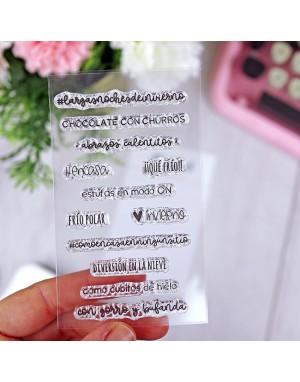 #largasnochesdeinvierno
CHOCOLATE CON CHURROS
abrazos calentitos
#encasa ¡¡QUÉ FRÍO!!
estufas en modo ON
FRÍO POLAR ♥ invierno
#comoencasaenningúnsitio
DIVERSIÓN EN LA NIEVE
como cubitos de hielo
con gorro y bufanda